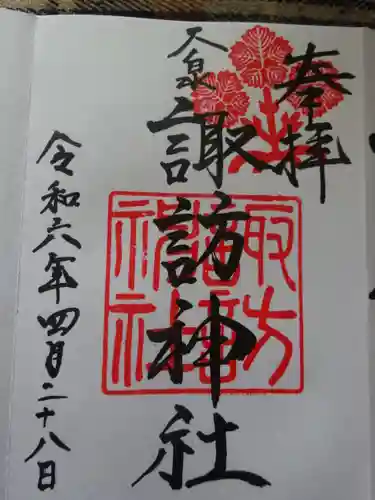 奉拝
大泉
諏訪神社
諏訪
神社
令和六年四月二十八日